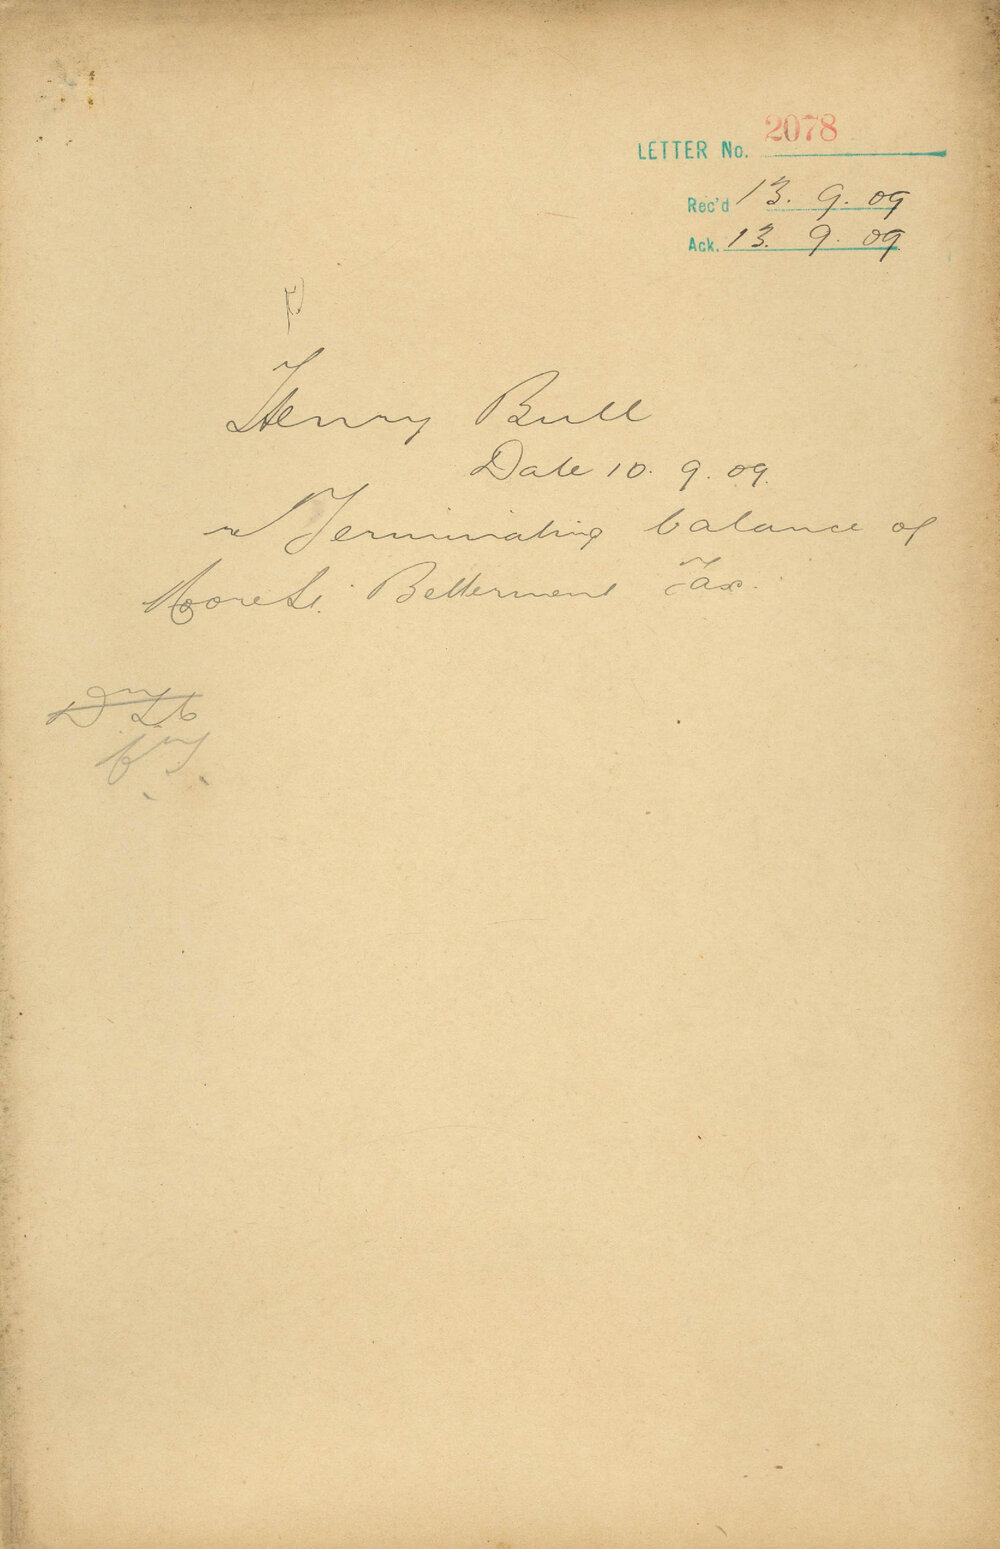 2078
LETTER No.
Rec'd 13. 9. 09
Ack. 13. 9. 09
Henry Bull
Date 10. 9. 09.
re Terminating balance of
Moore St. Betterment Tax.